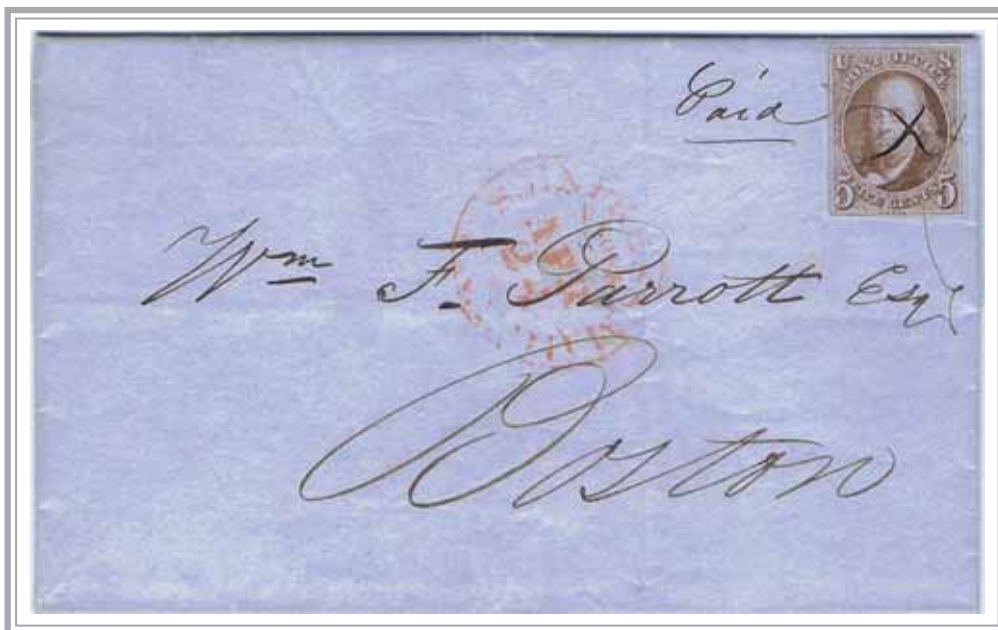 Paid
U S
POST OFFICE
X
5 FIVE CENTS 5
Wm F. Parrott Esq
Boston